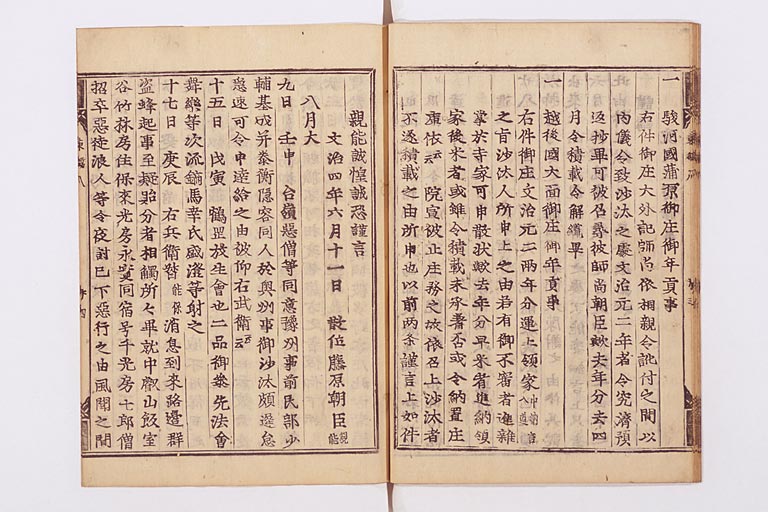 一 駿河國蒲原御庄御年貢事
右件御庄大外記師尚依相親令訛付之間以
内儀令致沙汰之處文治元二年者令究濟預
返抄畢可被召尋彼師尚朝臣歟去年分去四
月令積載令解纜畢
一 越後國大面御庄御年貢事
右件御庄文治元二兩年分運上領家中納言
之由沙汰人所申上之由若有御不審者進雜
掌於寺家可申散状歟去年分早米者進納領
家後米者或雖令積載未承著否或令納置庄
庫依云云院宣被止庄務之故依召上沙汰者
不遂積載之由所申也以前兩条謹言上如件
親能誠惶誠恐謹言
文治四年六月十一日 散位藤原朝臣親能
八月大
九日 壬申 台嶺惡僧等同意豫州事前民部少
輔基成并泰衡隠容同人於奥州事御沙汰頗遅怠
急速可令申達給之由被仰右武衛云云
十五日 戊寅 鶴罡放生會也二品御参先法會
舞樂等次流鏑馬幸氏盛澄等射之
十七日 庚辰 右兵衛督能保消息到来路邊群
盗蜂起事至疑貽分者相觸所々畢就中叡山飯室
谷竹林房住侶来光房永實同宿号千光房七郎僧
招卒惡徒浪人等令夜討已下惡行之由風聞之間